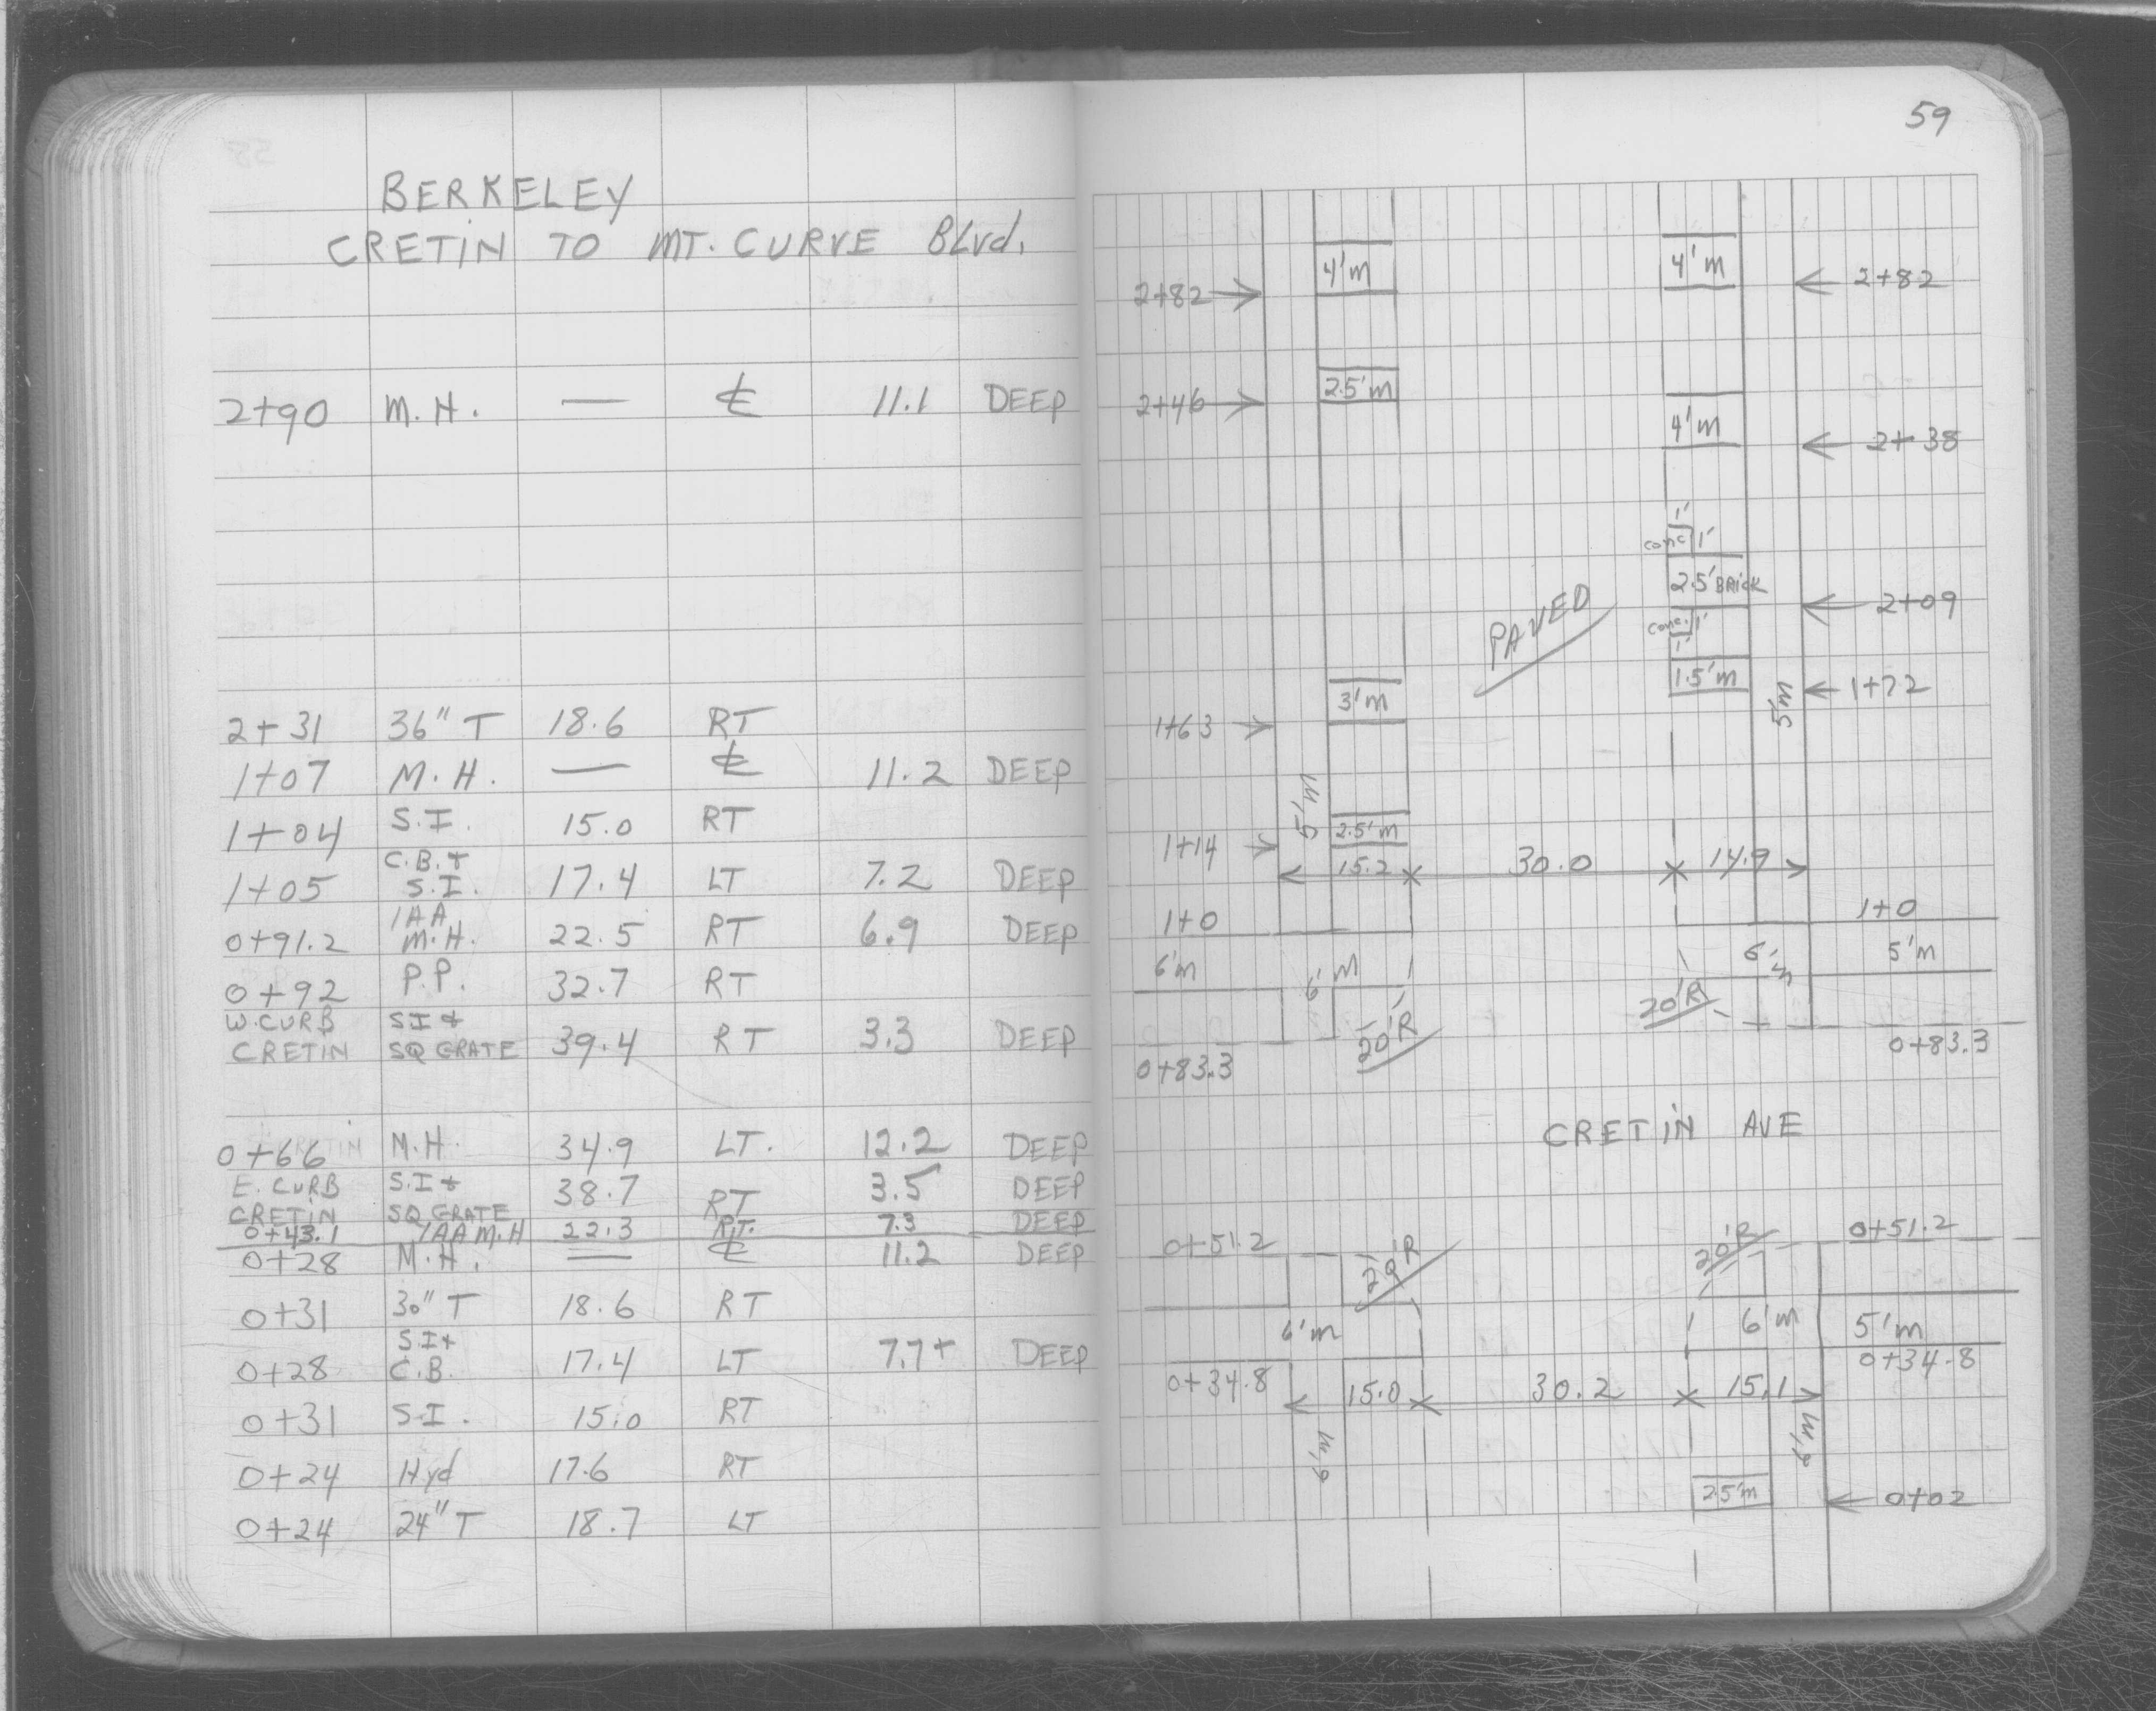 BERKELEY
CRETIN TO MT. CURVE BLvd.
2+90 M.H. — ℄ 11.1 DEEP
2+31 36" T 18.6 RT
1+07 M.H. — ℄ 11.2 DEEP
1+04 S.I. 15.0 RT
1+05 C.B.+ S.I. 17.4 LT 7.2 DEEP
0+91.2 1AA M.H. 22.5 RT 6.9 DEEP
0+92 P.P. 32.7 RT
W.CURB CRETIN SI+ SQ GRATE 39.4 RT 3.3 DEEP
0+66 M.H. 34.9 LT. 12.2 DEEP
E. CURB CRETIN S.I+ SQ GRATE 38.7 RT 3.5 DEEP
0+43.1 1AA M.H 22.3 RT. 7.3 DEEP
0+28 M.H. — ℄ 11.2 DEEP
0+31 30" T 18.6 RT
0+28 S.I+ C.B. 17.4 LT 7.7+ DEEP
0+31 S.I. 15.0 RT
0+24 Hyd 17.6 RT
0+24 24" T 18.7 LT
59
2+82 4'm 4'm 2+82
2+46 2.5'm
4'm 2+38
1'
conc 1'
2.5' BRICK
PAVED 2+09
conc. 1'
1'
1.5'm 1+72
5'm
3'm
1+63
5'm
2.5'm
1+14
15.2 30.0 14.9
1+0 1+0
6'm 6'm 6'm 5'm
20'R 20'R
0+83.3 0+83.3
CRETIN AVE
0+51.2 20'R 20'R 0+51.2
6'm 6'm 5'm
0+34.8 0+34.8
15.0 30.2 15.1
6'm 6'm
25'm 0+02